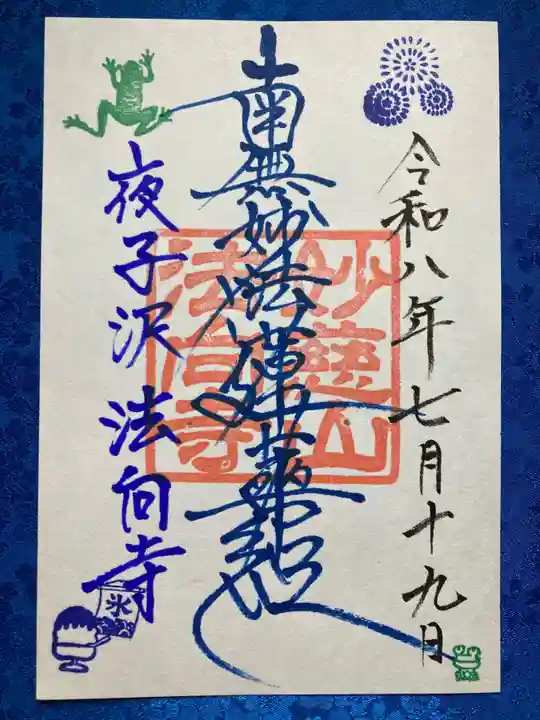 令和八年七月十九日
南無妙法蓮華経
妙慈山
法向寺
夜子沢 法向寺
氷